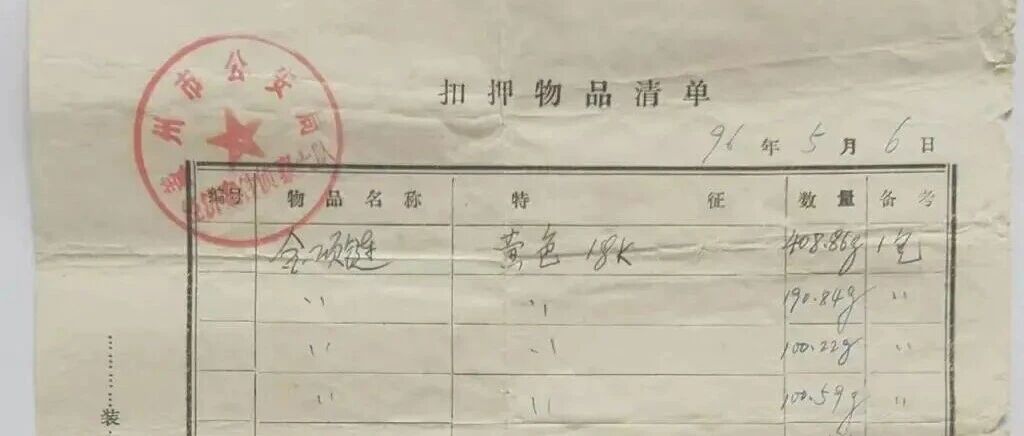 州市公安局
扣押物品清单
96年5月6日
编号 物品名称 特征 数量 备考
金项链 黄色 18K 408.86g 1包
〃 〃 190.84g 〃
〃 〃 100.22g 〃
〃 〃 100.59g 〃
装